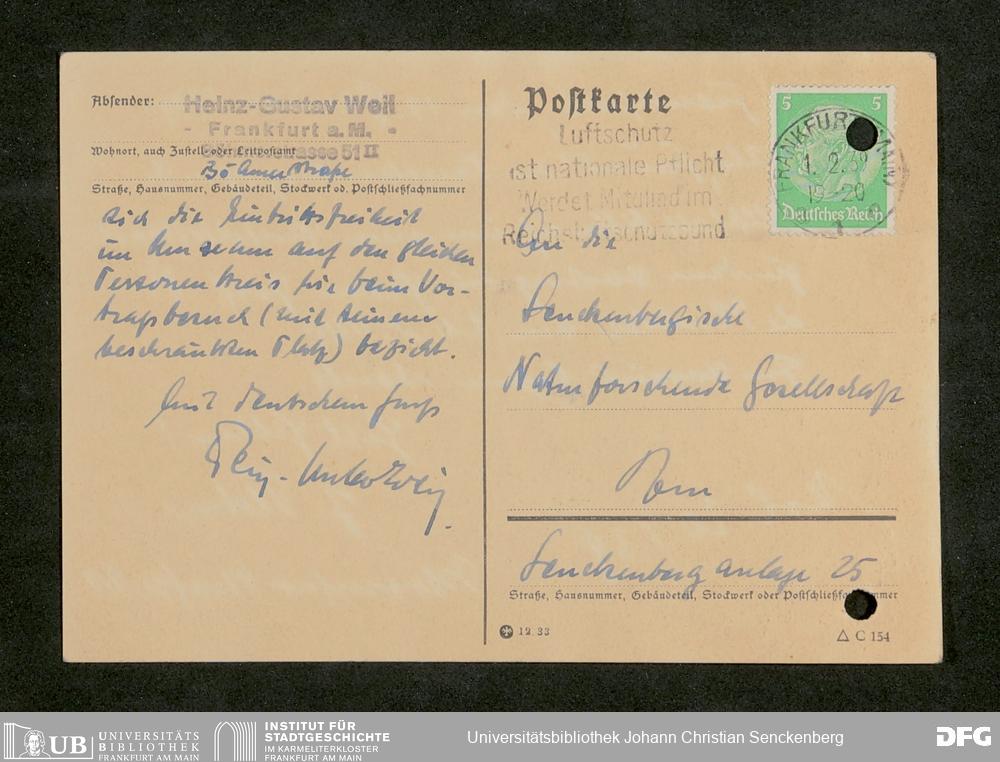 Absender:
Heinz-Gustav Weil
- Frankfurt a. M. -
Wohnort, auch Zustell- oder Leitpostamt
strasse 51 II
straße
Straße, Hausnummer, Gebäudeteil, Stockwerk od. Postschließfachnummer
sich die Eintrittsfreiheit
im Museum auf den gleichen
Personenkreis wie beim Vor-
tragsbesuch (mit seinem
beschränkten Platz) bezieht.
Mit deutschem Gruß
Heinz-Gustav Weil
Postkarte
Luftschutz
ist nationale Pflicht
Werdet Mitglied im
Reichsluftschutzbund
5 5
FRANKFURT (MAIN)
1. 2. 39
19-20
Deutsches Reich
An die
Senckenbergische
Naturforschende Gesellschaft
Senckenberg anlage 25
Straße, Hausnummer, Gebäudeteil, Stockwerk oder Postschließfachnummer
12. 33
C 154
UB UNIVERSITÄTS
BIBLIOTHEK
FRANKFURT AM MAIN
INSTITUT FÜR
STADTGESCHICHTE
IM KARMELITERKLOSTER
FRANKFURT AM MAIN
Universitätsbibliothek Johann Christian Senckenberg
DFG